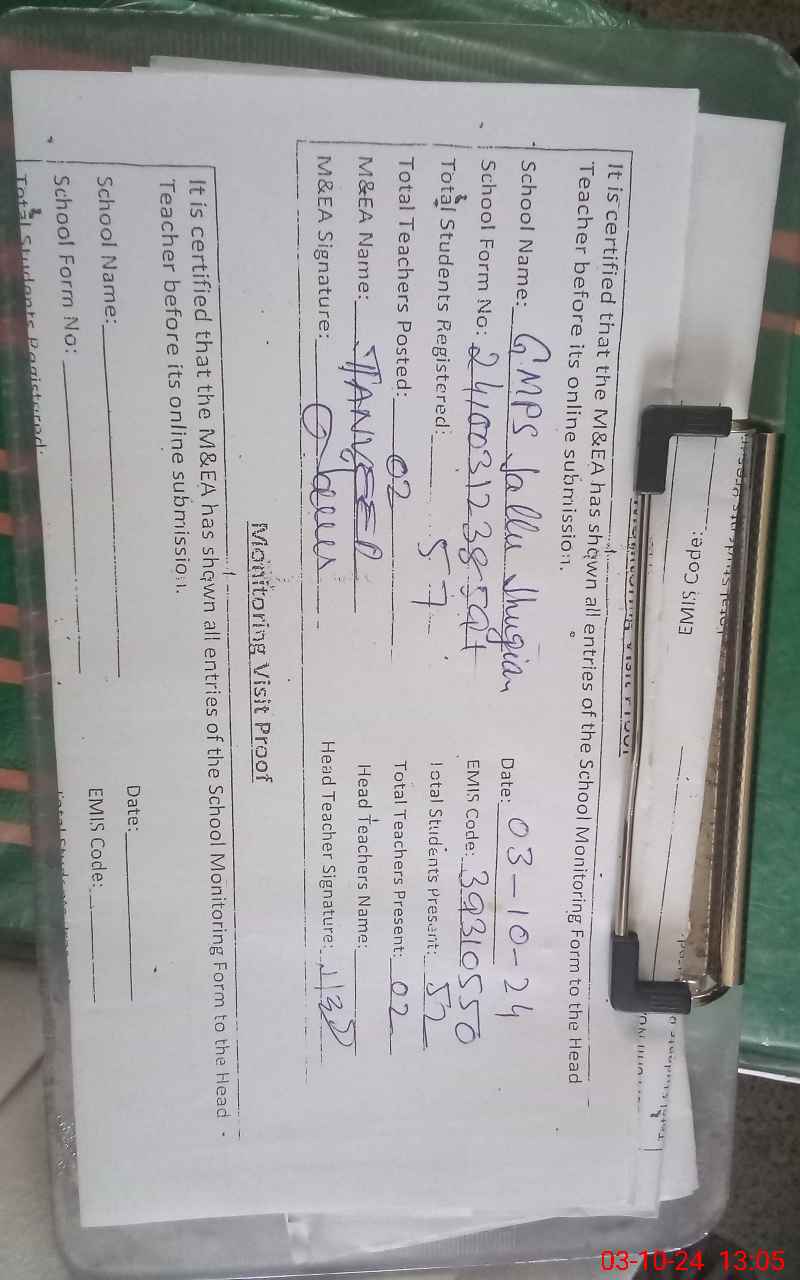 It is certified that the M&EA has shown all entries of the School Monitoring Form to the Head
Teacher before its online submission.
School Name: GMPS Jallu Jhugian Date: 03-10-24
School Form No: EMIS Code: 39310550
Total Students Registered: 57 Total Students Present: 52
Total Teachers Posted: 02 Total Teachers Present: 02
M&EA Name: TANVEER Head Teachers Name:
M&EA Signature: Head Teacher Signature:
Monitoring Visit Proof
It is certified that the M&EA has shown all entries of the School Monitoring Form to the Head
Teacher before its online submission.
School Name: Date:
School Form No: EMIS Code:
Total Students Registered:
EMIS Code:
03-10-24 13:05